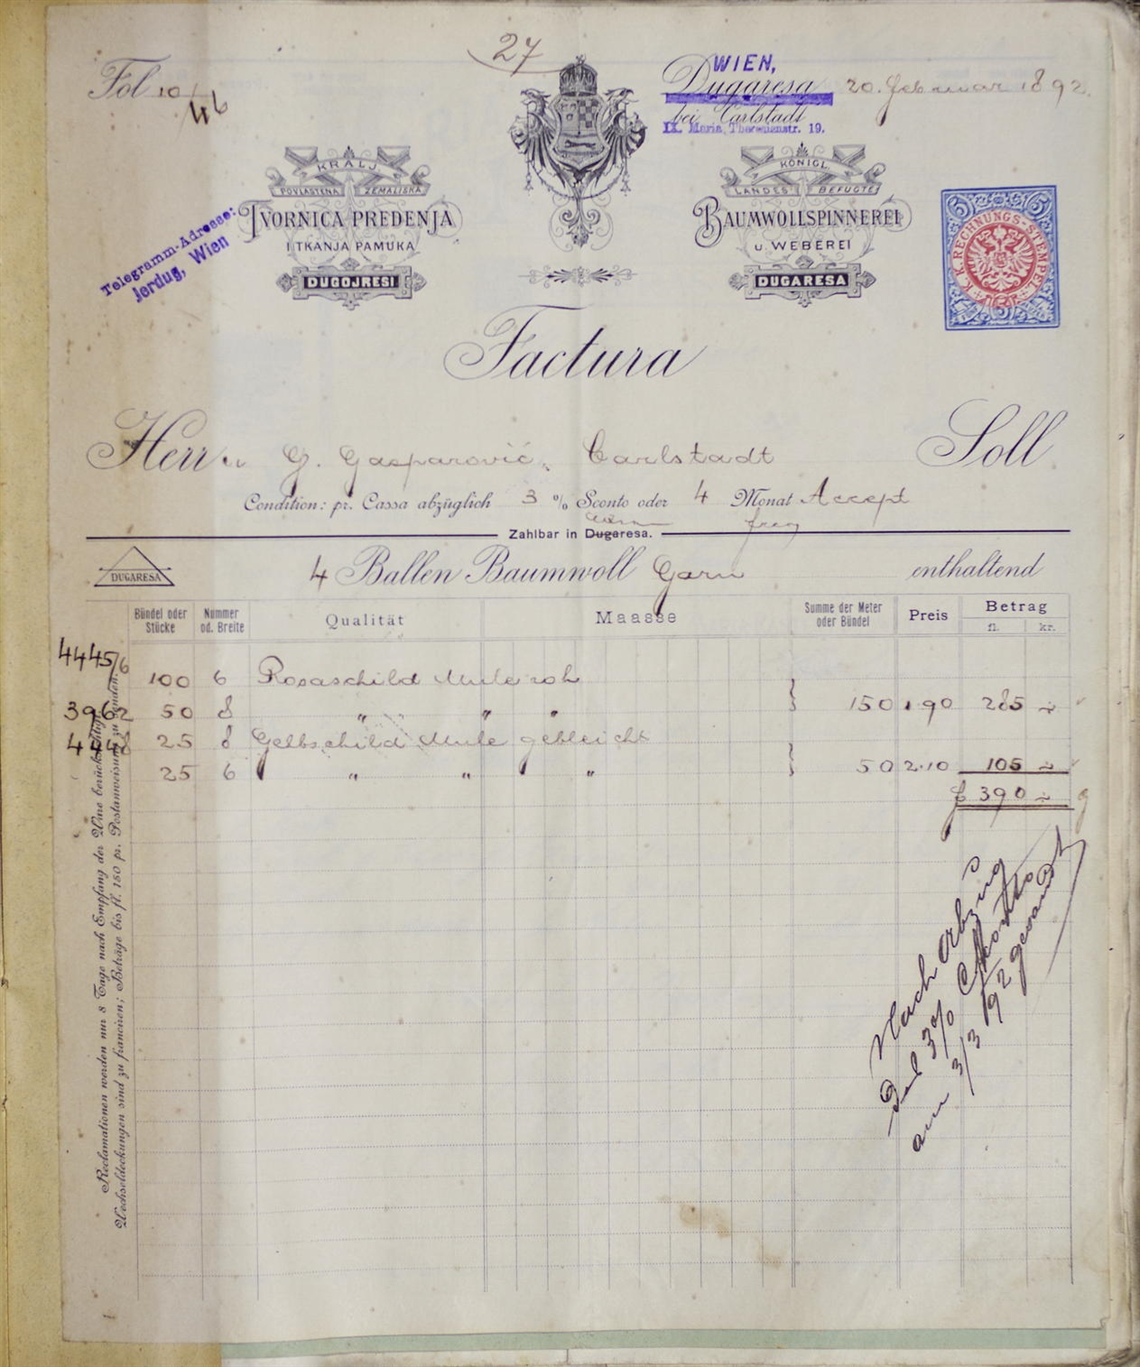 27
Fol 10/46
WIEN,
Dugaresa 20. Februar 1892.
bei Carlstadt
IX. Maria Theresienstr. 19.
KRALJ.
POVLAŠTENA ZEMALJSKA
TVORNICA PREDENJA
I TKANJA PAMUKA
DUGOJRESI
KÖNIGL.
LANDES BEFUGTE
BAUMWOLLSPINNEREI
u. WEBEREI
DUGARESA
Telegramm-Adresse:
Jerdug, Wien
5 5
K. K. RECHNUNGS-STEMPEL
5
Factura
Herrn G. Gasparović, Carlstadt Soll
Condition: pr. Cassa abzüglich 3 % Sconto oder 4 Monat Accept
Wien franco
Zahlbar in Dugaresa.
DUGARESA
4 Ballen Baumwoll Garn enthaltend
Bündel oder Stücke Nummer od. Breite Qualität Maasse Summe der Meter oder Bündel Preis Betrag
fl. kr.
4445/6 100 6 Rosaschild Mule roh
3962 50 8 " " " 150 1.90 285 ~
25 8 Gelbschild Mule gebleicht
25 6 " " " 50 2.10 105 ~
f 390 ~
Nach Abzug
3% Skonto
am 3/3 192 gesandt
Reclamationen werden nur 8 Tage nach Empfang der Ware berücksichtigt.
Wechseldeckungen sind zu franciren; Beträge bis fl. 150 pr. Postanweisung zu senden.